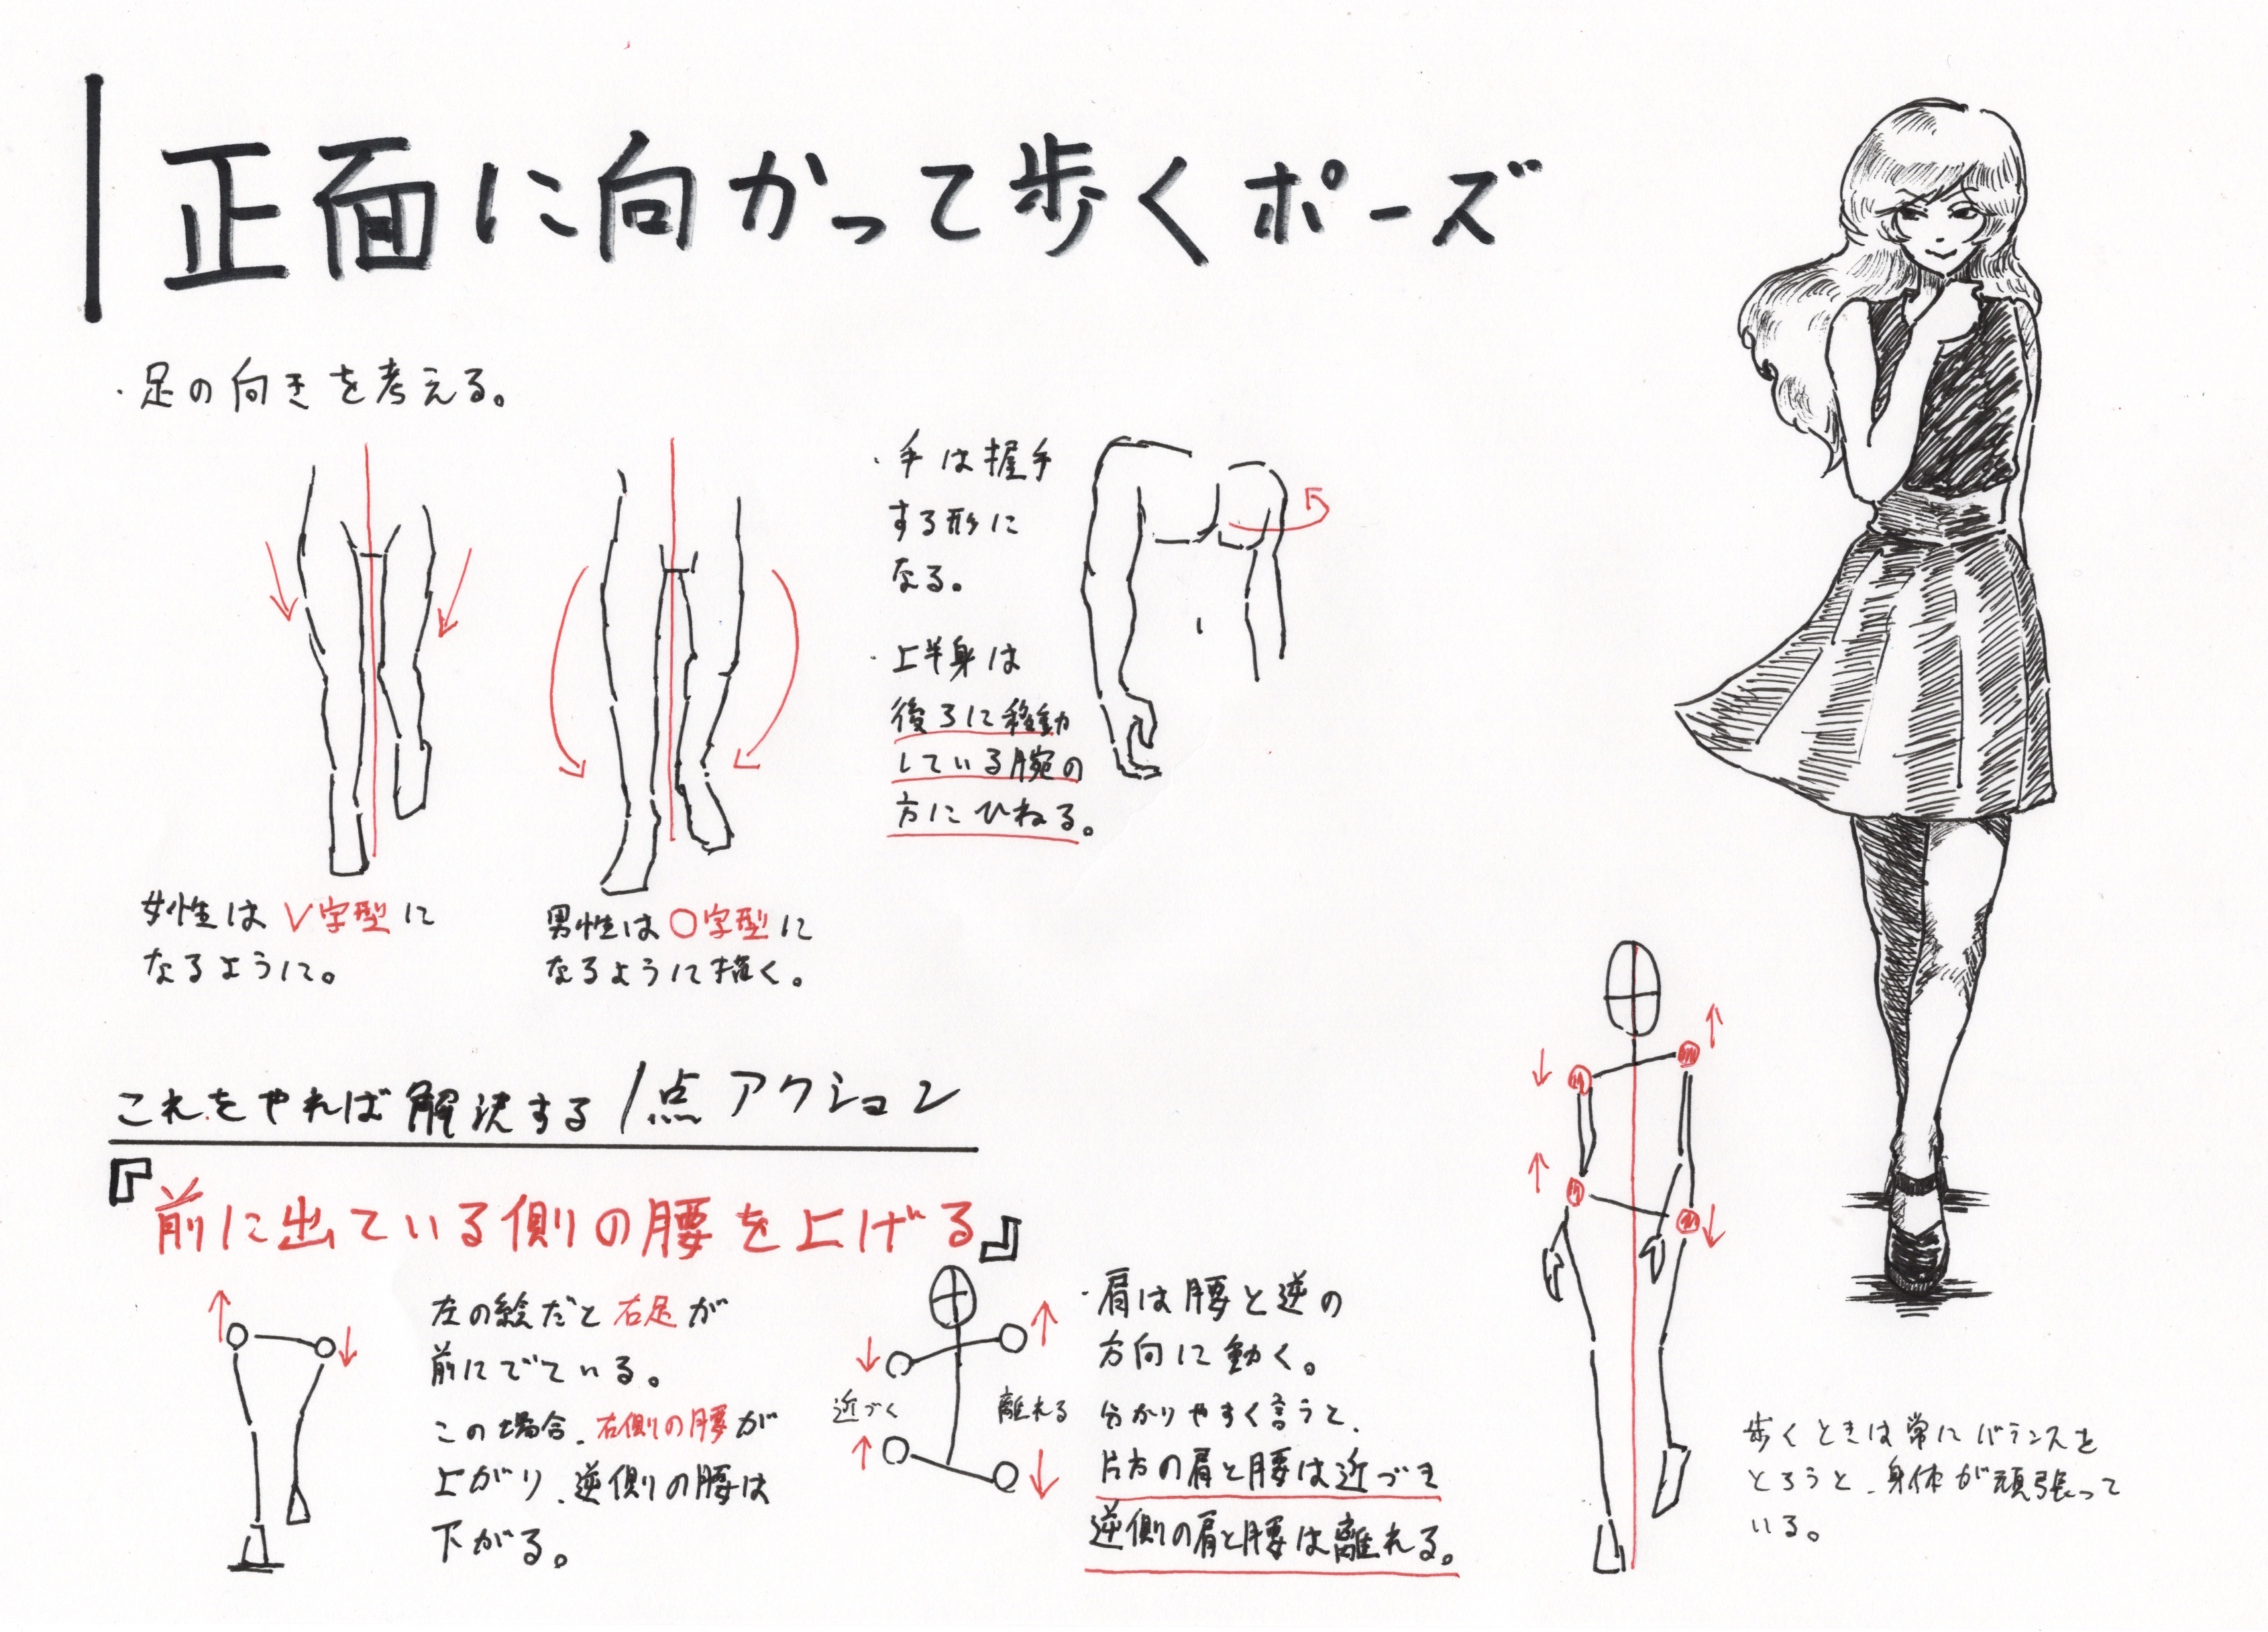 正面に向かって歩くポーズ
・足の向きを考える。
女性はV字型に
なるように。
男性は〇字型に
なるように描く。
・手は握手
する形に
なる。
・上半身は
後ろに移動
している腕の
方にひねる。
これをやれば解決する1点アクション
『前に出ている側の腰を上げる』
左の絵だと右足が
前にでている。
この場合、右側の腰が
上がり、逆側の腰は
下がる。
近づく
離れる
・肩は腰と逆の
方向に動く。
分かりやすく言うと、
片方の肩と腰は近づき
逆側の肩と腰は離れる。
歩くときは常にバランスを
とろうと、身体が頑張って
いる。